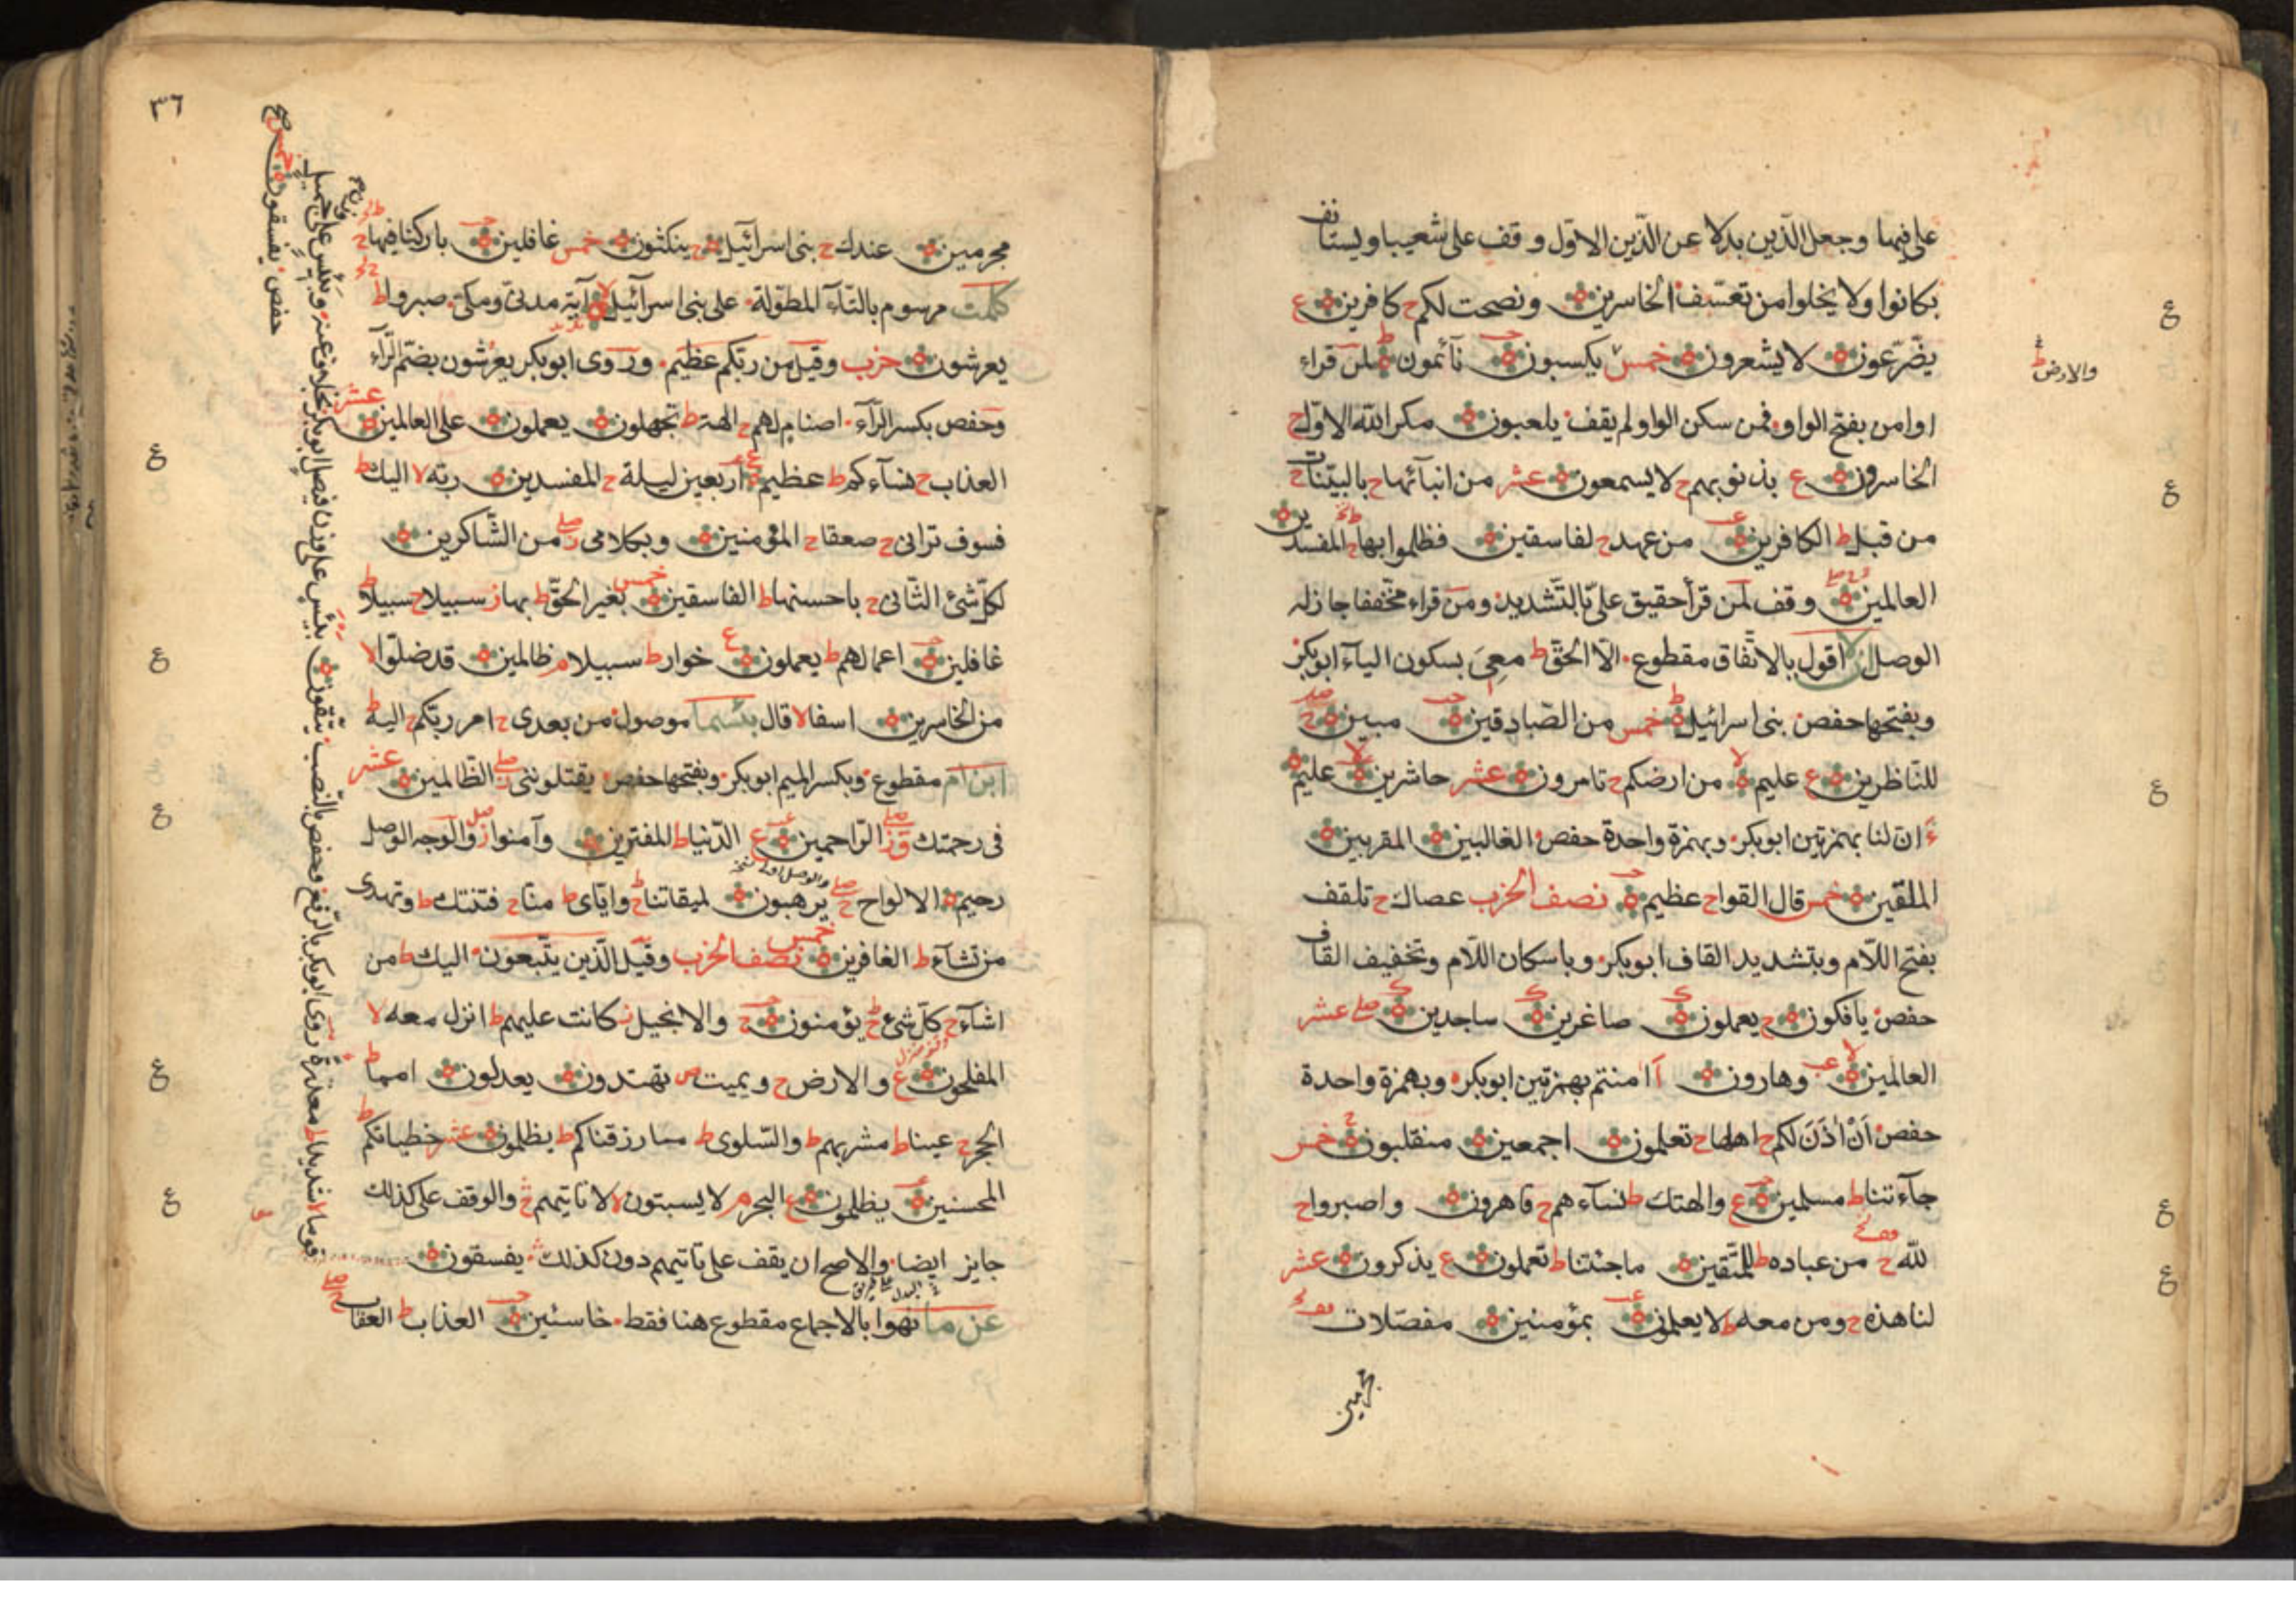 على فيها وجعل الذين بدلا عن الذين الاول وقف على شعيبا ويستانف
بكانوا ولا يخلوا من تعسف الخاسرين ونصحت لكم ح كافرين ع
يضّرّعون لا يشعرون خمس يكسبون نآئمون ط لمن قراء
والارض ط
اوامن بفتح الواو فمن سكن الواو لم يقف يلعبون مكر الله الاول ح
الخاسرون ع بذنوبهم ح لا يسمعون عشر من انبآئها ح بالبينات ح
من قبل ط الكافرين من عهد ح لفاسقين فظلموا بها ح المفسدين
العالمين وقف لمن قرأ حقيق علىّ بالتّشديد ومن قراء مخففا جاز له
الوصل ان لا اقول بالاتفاق مقطوع الا الحق ط معى بسكون اليآء ابو بكر
وبفتحها حفص بنى اسرائيل ط خمس من الصادقين مبين ح
للناظرين ع عليم لا من ارضكم ح تامرون عشر حاشرين لا عليم
ء ان لنا بهمزتين ابو بكر وبهمزة واحدة حفص الغالبين المقربين
الملقين خمس قال القوا ح عظيم نصف الحزب عصاك ح تلقف
بفتح اللام وبتشديد القاف ابو بكر وباسكان اللام وتخفيف القاف
حفص يافكون ح يعملون صاغرين ساجدين صلى عشر
العالمين لا وهارون أ امنتم بهمزتين ابو بكر وبهمزة واحدة
حفص أن اذن لكم ح اهلها ح تعلمون اجمعين منقلبون ح خمس
جآءتنا ط مسلمين ع والهتك ط نسآءهم ح قاهرون واصبروا ح
لله ح من عباده ط للمتقين ما جئتنا ط تعملون ع يذكرون عشر
لنا هذه ح ومن معه ط لا يعلمون بمؤمنين مفصّلات
مجرمين
٣٦
مجرمين عندك ح بنى اسرآئيل ح ينكثون خمس غافلين باركنا فيها ح
كلمت مرسوم بالتآء المطوّلة على بنى اسرآئيل لا آية مدنىّ ومكىّ صبروا ط
يعرشون حزب وقيل من ربكم عظيم وروى ابو بكر يعرشون بضم الرّآء
وحفص بكسر الرّآء اصنام لهم ح الهة ط تجهلون يعملون على العالمين عشر
العذاب ح نسآءكم ط عظيم اربعين ليلة ح المفسدين ربه لا اليك ط
فسوف ترانى ح صعقا ح المؤمنين وبكلامى من الشّاكرين
لكل شئ الثانى ح باحسنها ط الفاسقين خمس بغير الحق ط بها ز سبيلا ح سبيلا ط
غافلين اعمالهم ط يعملون ع خوار ط سبيلا م ظالمين قد ضلوا لا
من الخاسرين اسفا لا قال بئسما موصول من بعدى ح امر ربكم ح اليه ط
ابن ام مقطوع وبكسر الميم ابو بكر وبفتحها حفص يقتلوننى الظالمين عشر
فى رحمتك الراحمين ع الدنيا ط المفترين وآمنوا والوجه الوصل
رحيم الالواح ح يرهبون لميقاتنا ح واياى ط منّا ح فتنتك ط وتهدى
من تشآء ط الغافرين خمس نصف الحزب وقيل الّذين يتّبعون اليك ط من
اشآء ح كل شئ ح يؤمنون ح والانجيل ز كانت عليهم ط انزل معه لا
المفلحون ع والارض ح ويميت ص تهتدون يعدلون امما ط
الحجر ح عينا ط مشربهم ط والسّلوى ط ما رزقناكم ط يظلمون عشر خطياتكم ط
المحسنين يظلمون ع البحر م لا يسبتون لا لا تاتيهم ح والوقف على كذلك
جايز ايضا والاصح ان يقف على تاتيهم دون كذلك يفسقون
عن ما نهوا بالاجماع مقطوع هنا فقط خاسئين العذاب ط العقاب
قوما لا شديدا ط معذرة روى ابو بكر بالرّفع وحفص بالنّصب يتّقون بئيس على وزن فيعل ابو بكر بخلاف عنه وبئيس على
حفص يفسقون خمس